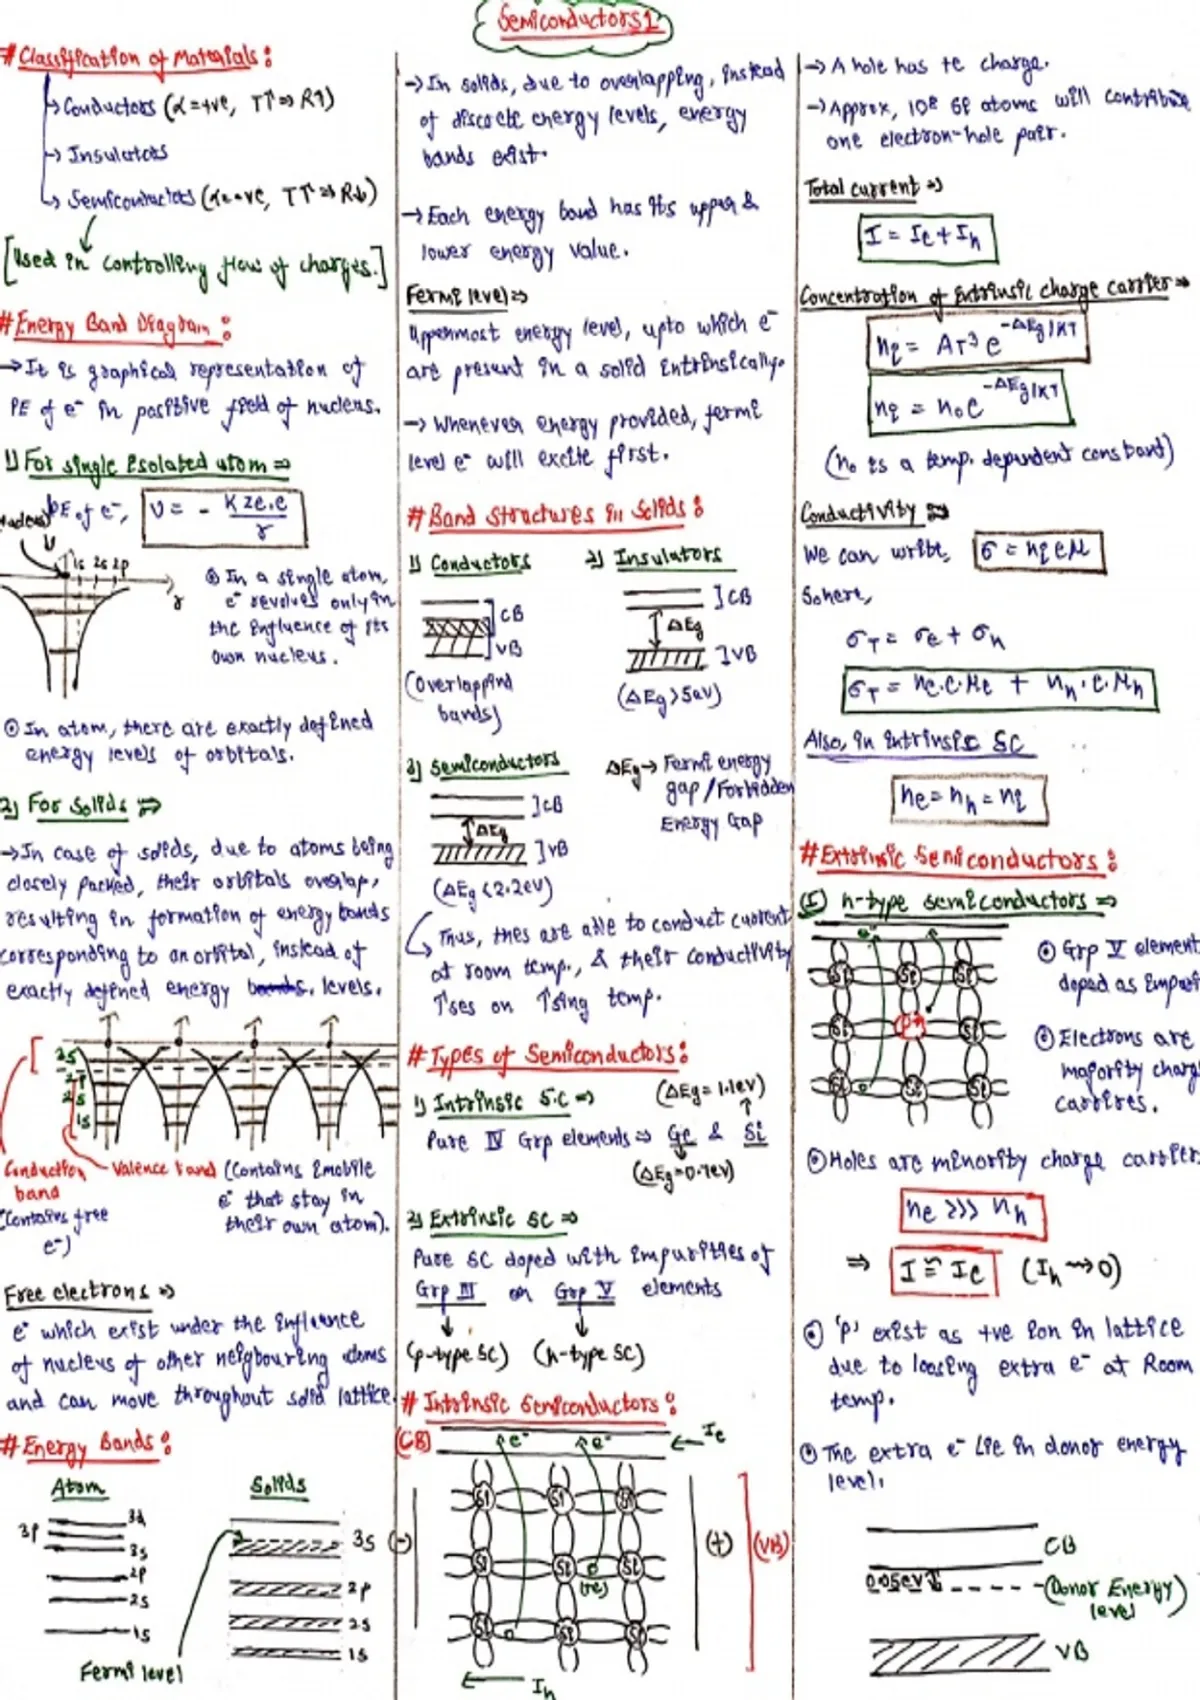 Semiconductors 1
# Classification of Materials:
→ Conductors (α=+ve, T↑ ⇒ R↑)
→ Insulators
→ Semiconductors (α=-ve, T↑ ⇒ R↓)
[Used in controlling flow of charges.]
# Energy Band Diagram:
→ It is graphical representation of
PE of e⁻ in positive field of nucleus.
1) For single isolated atom ⇒
PE of e⁻, U = - Kze.e/r
U
1s 2s 2p
r
⊙ In a single atom,
e⁻ revolves only in
the influence of its
own nucleus.
⊙ In atom, there are exactly defined
energy levels of orbitals.
2) For Solids ⇒
→ In case of solids, due to atoms being
closely packed, their orbitals overlap,
resulting in formation of energy bands
corresponding to an orbital, instead of
exactly defined energy bands. levels.
2s
1s
Conduction
band
(contains free
e⁻)
Valence band (Contains immobile
e⁻ that stay in
their own atom).
Free electrons ⇒
e⁻ which exist under the influence
of nucleus of other neighbouring atoms
and can move throughout solid lattice.
# Energy Bands:
Atom
Solids
3d
3p
3s
2p
2s
1s
3s
2p
2s
1s
Fermi level
→ In solids, due to overlapping, instead
of discrete energy levels, energy
bands exist.
→ Each energy band has its upper &
lower energy value.
Fermi level ⇒
Uppermost energy level, upto which e⁻
are present in a solid intrinsically.
→ Whenever energy provided, fermi
level e⁻ will excite first.
# Band Structures in Solids:
1) Conductors
2) Insulators
CB
VB
(Overlapping
bands)
CB
ΔEg
VB
(ΔEg > 5eV)
3) Semiconductors
CB
ΔEg
VB
(ΔEg < 2.2eV)
ΔEg → Fermi energy
gap / Forbidden
Energy Gap
Thus, thes are able to conduct current
at room temp., & their conductivity
↑ses on ↑sing temp.
# Types of Semiconductors:
1) Intrinsic S.C ⇒
(ΔEg = 1.1eV)
Pure IV Grp elements ⇒ Ge & Si
(ΔEg = 0.7eV)
2) Extrinsic SC ⇒
Pure SC doped with impurities of
Grp III or Grp V elements
(p-type SC) (n-type SC)
# Intrinsic Semiconductors:
(CB)
e⁻ e⁻
← Ie
Si Si Si
(-)
Si Si Si
(+)
(VB)
Si Si Si
Ih
→ A hole has +e charge.
→ Approx, 10⁸ Ge atoms will contribute
one electron-hole pair.
Total current ⇒
I = Ie + Ih
Concentration of intrinsic charge carrier ⇒
ni = AT³ e^(-ΔEg/KT)
ni = n₀e^(-ΔEg/KT)
(n₀ is a temp. dependent constant)
Conductivity ⇒
We can write, σ = ni eμ
So here,
σT = σe + σh
σT = ne.e.μe + nh.e.μh
Also, in intrinsic SC
ne = nh = ni
# Extrinsic Semiconductors:
(I) n-type semiconductors ⇒
e⁻
Si Si Si
Si P+ Si
Si Si Si
⊙ Grp V element
doped as
⊙ Electrons are
majority
carrires.
⊙ Holes are minority charge
ne >>> nh
⇒ I ≈ Ie (Ih → 0)
⊙ 'P' exist as +ve ion in lattice
due to loosing extra e⁻ at Room
temp.
⊙ The extra e⁻ lie in donor energy
level.
CB
0.05eV
(Donor Energy
level)
VB